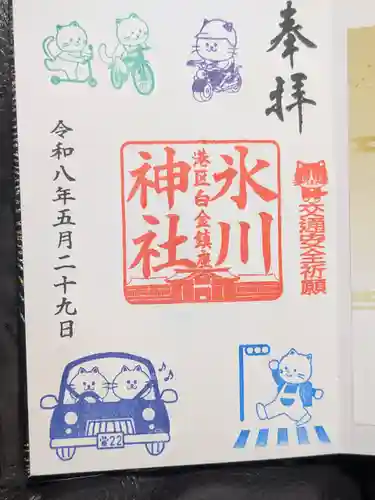 奉拝
交通安全祈願
氷川
港区白金鎮座
神社
令和八年五月二十九日
22